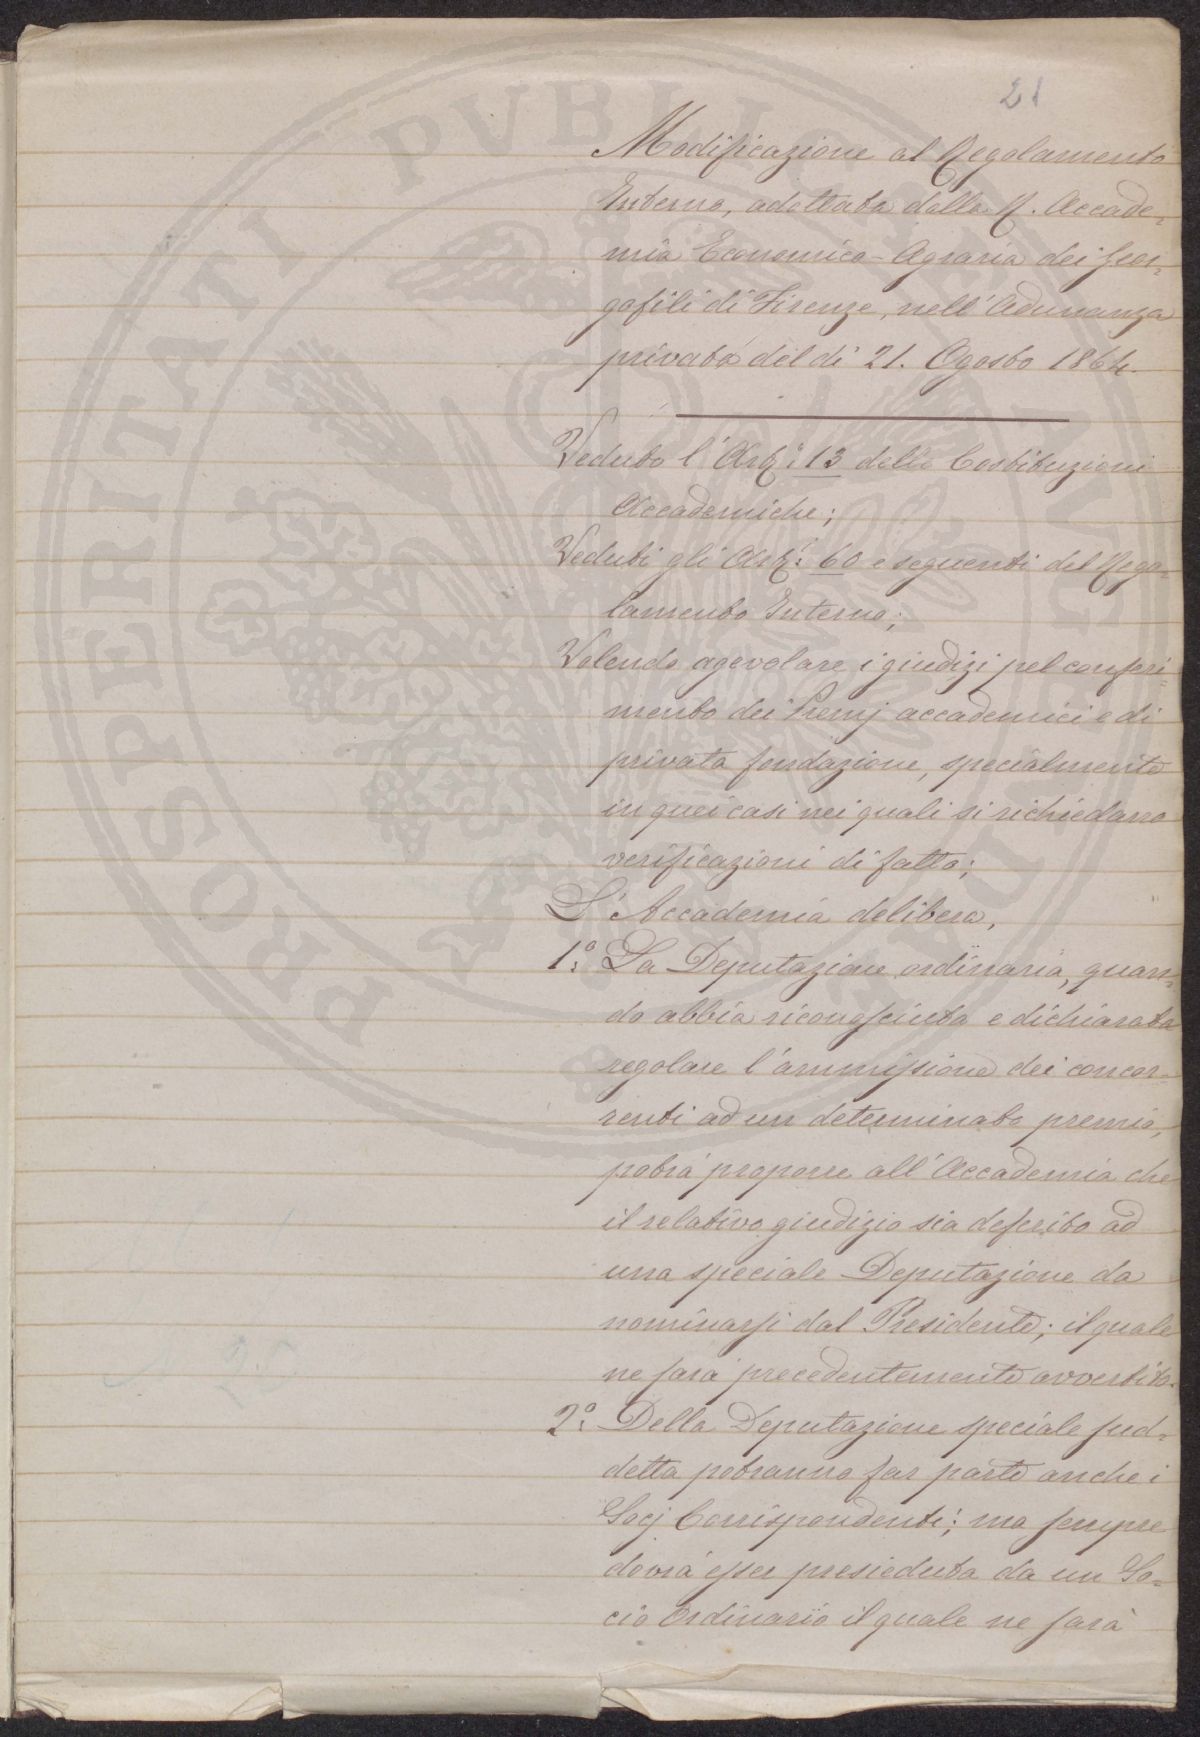 21
Modificazione al Regolamento
Interno, adottata dalla R. Accade-
mia Economico-Agraria dei Geor-
gofili di Firenze, nell'Adunanza
privata del dì 21. Agosto 1864.
Veduto l'Artº: 13 delle Costituzioni
Accademiche;
Veduti gli Artⁱ: 60 e seguenti del Rego-
lamento Interno;
Volendo agevolare i giudizi pel conferi-
mento dei Premj accademici e di
privata fondazione, specialmente
in quei casi nei quali si richiedano
verificazioni di fatto;
L'Accademia delibera,
1º: La Deputazione ordinaria, quan-
do abbia riconosciuta e dichiarata
regolare l'ammissione dei concor-
renti ad un determinato premio,
potrà proporre all'Accademia che
il relativo giudizio sia deferito ad
una speciale Deputazione da
nominarsi dal Presidente; il quale
ne sarà precedentemente avvertito.
2º: Della Deputazione speciale sud-
detta potranno far parte anche i
Socj Corrispondenti; ma sempre
dovrà esser presieduta da un So-
cio Ordinario il quale ne sarà
PROSPERITATI PUBLICAE AUGENDAE
25